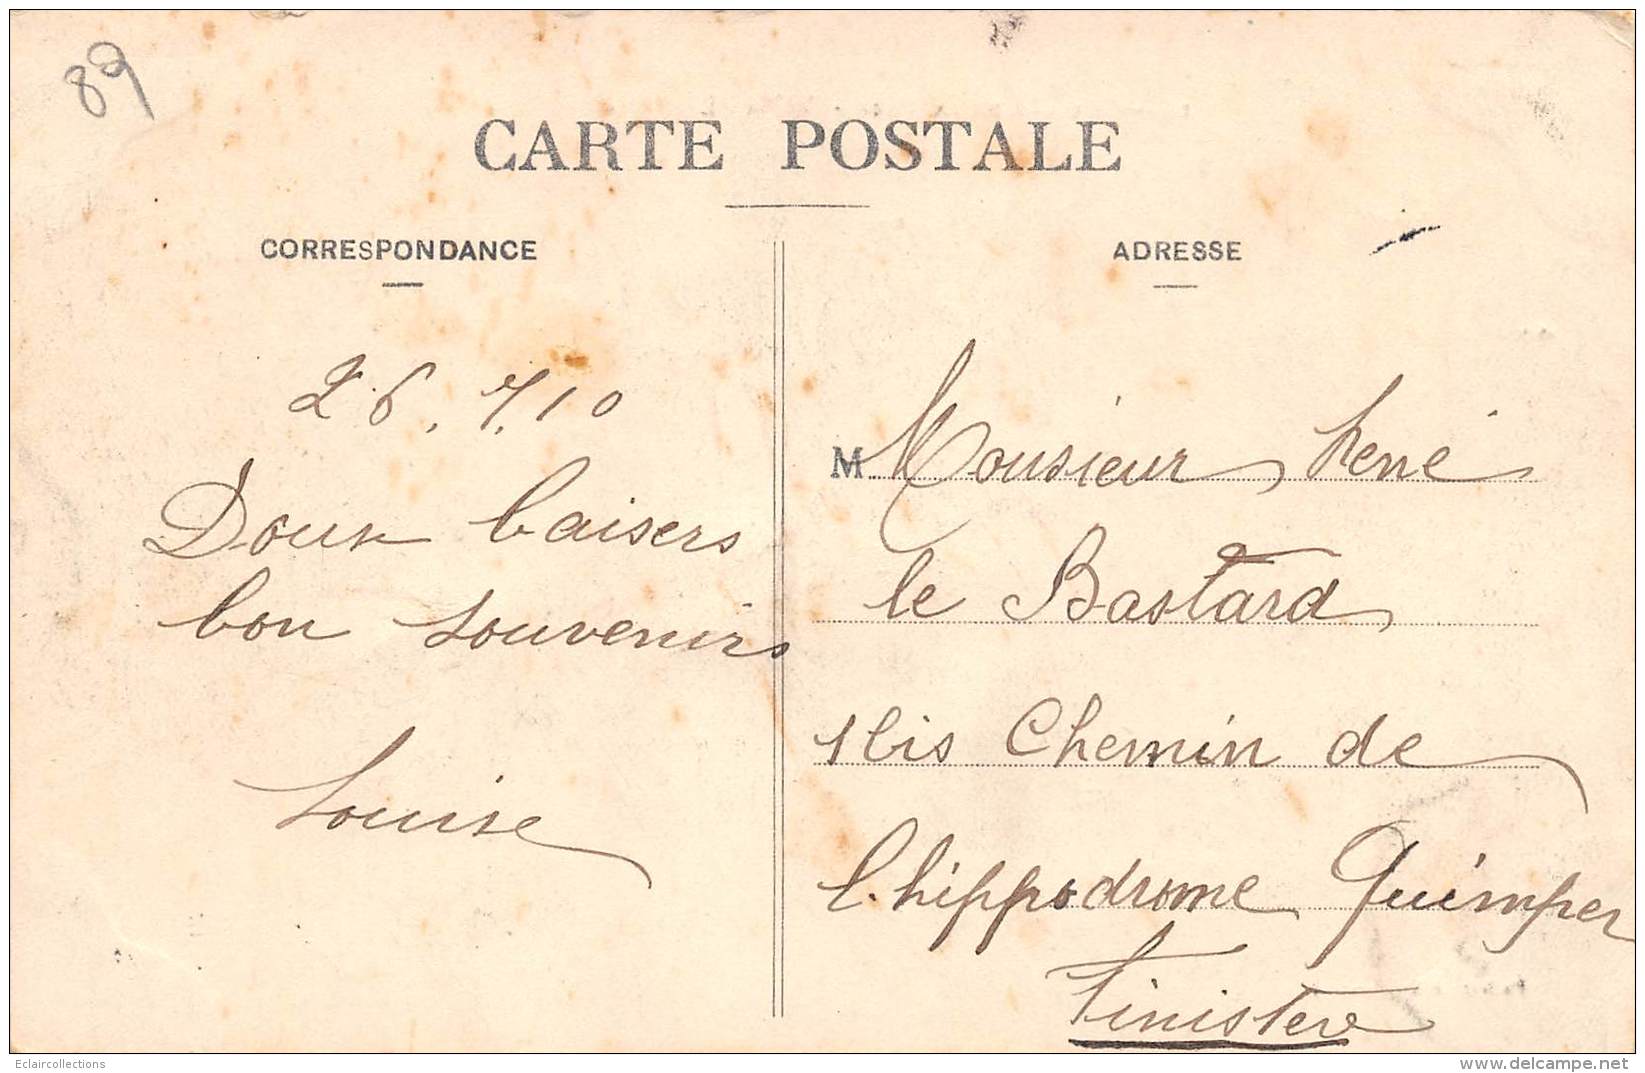 89
CARTE POSTALE
CORRESPONDANCE
26.7.10
Doux baisers
bon souvenirs
Louise
ADRESSE
M Monsieur René
le Bastard
1 bis Chemin de
l'hippodrome Quimper
Finistere
Eclaircollections
https://www.delcampe.net